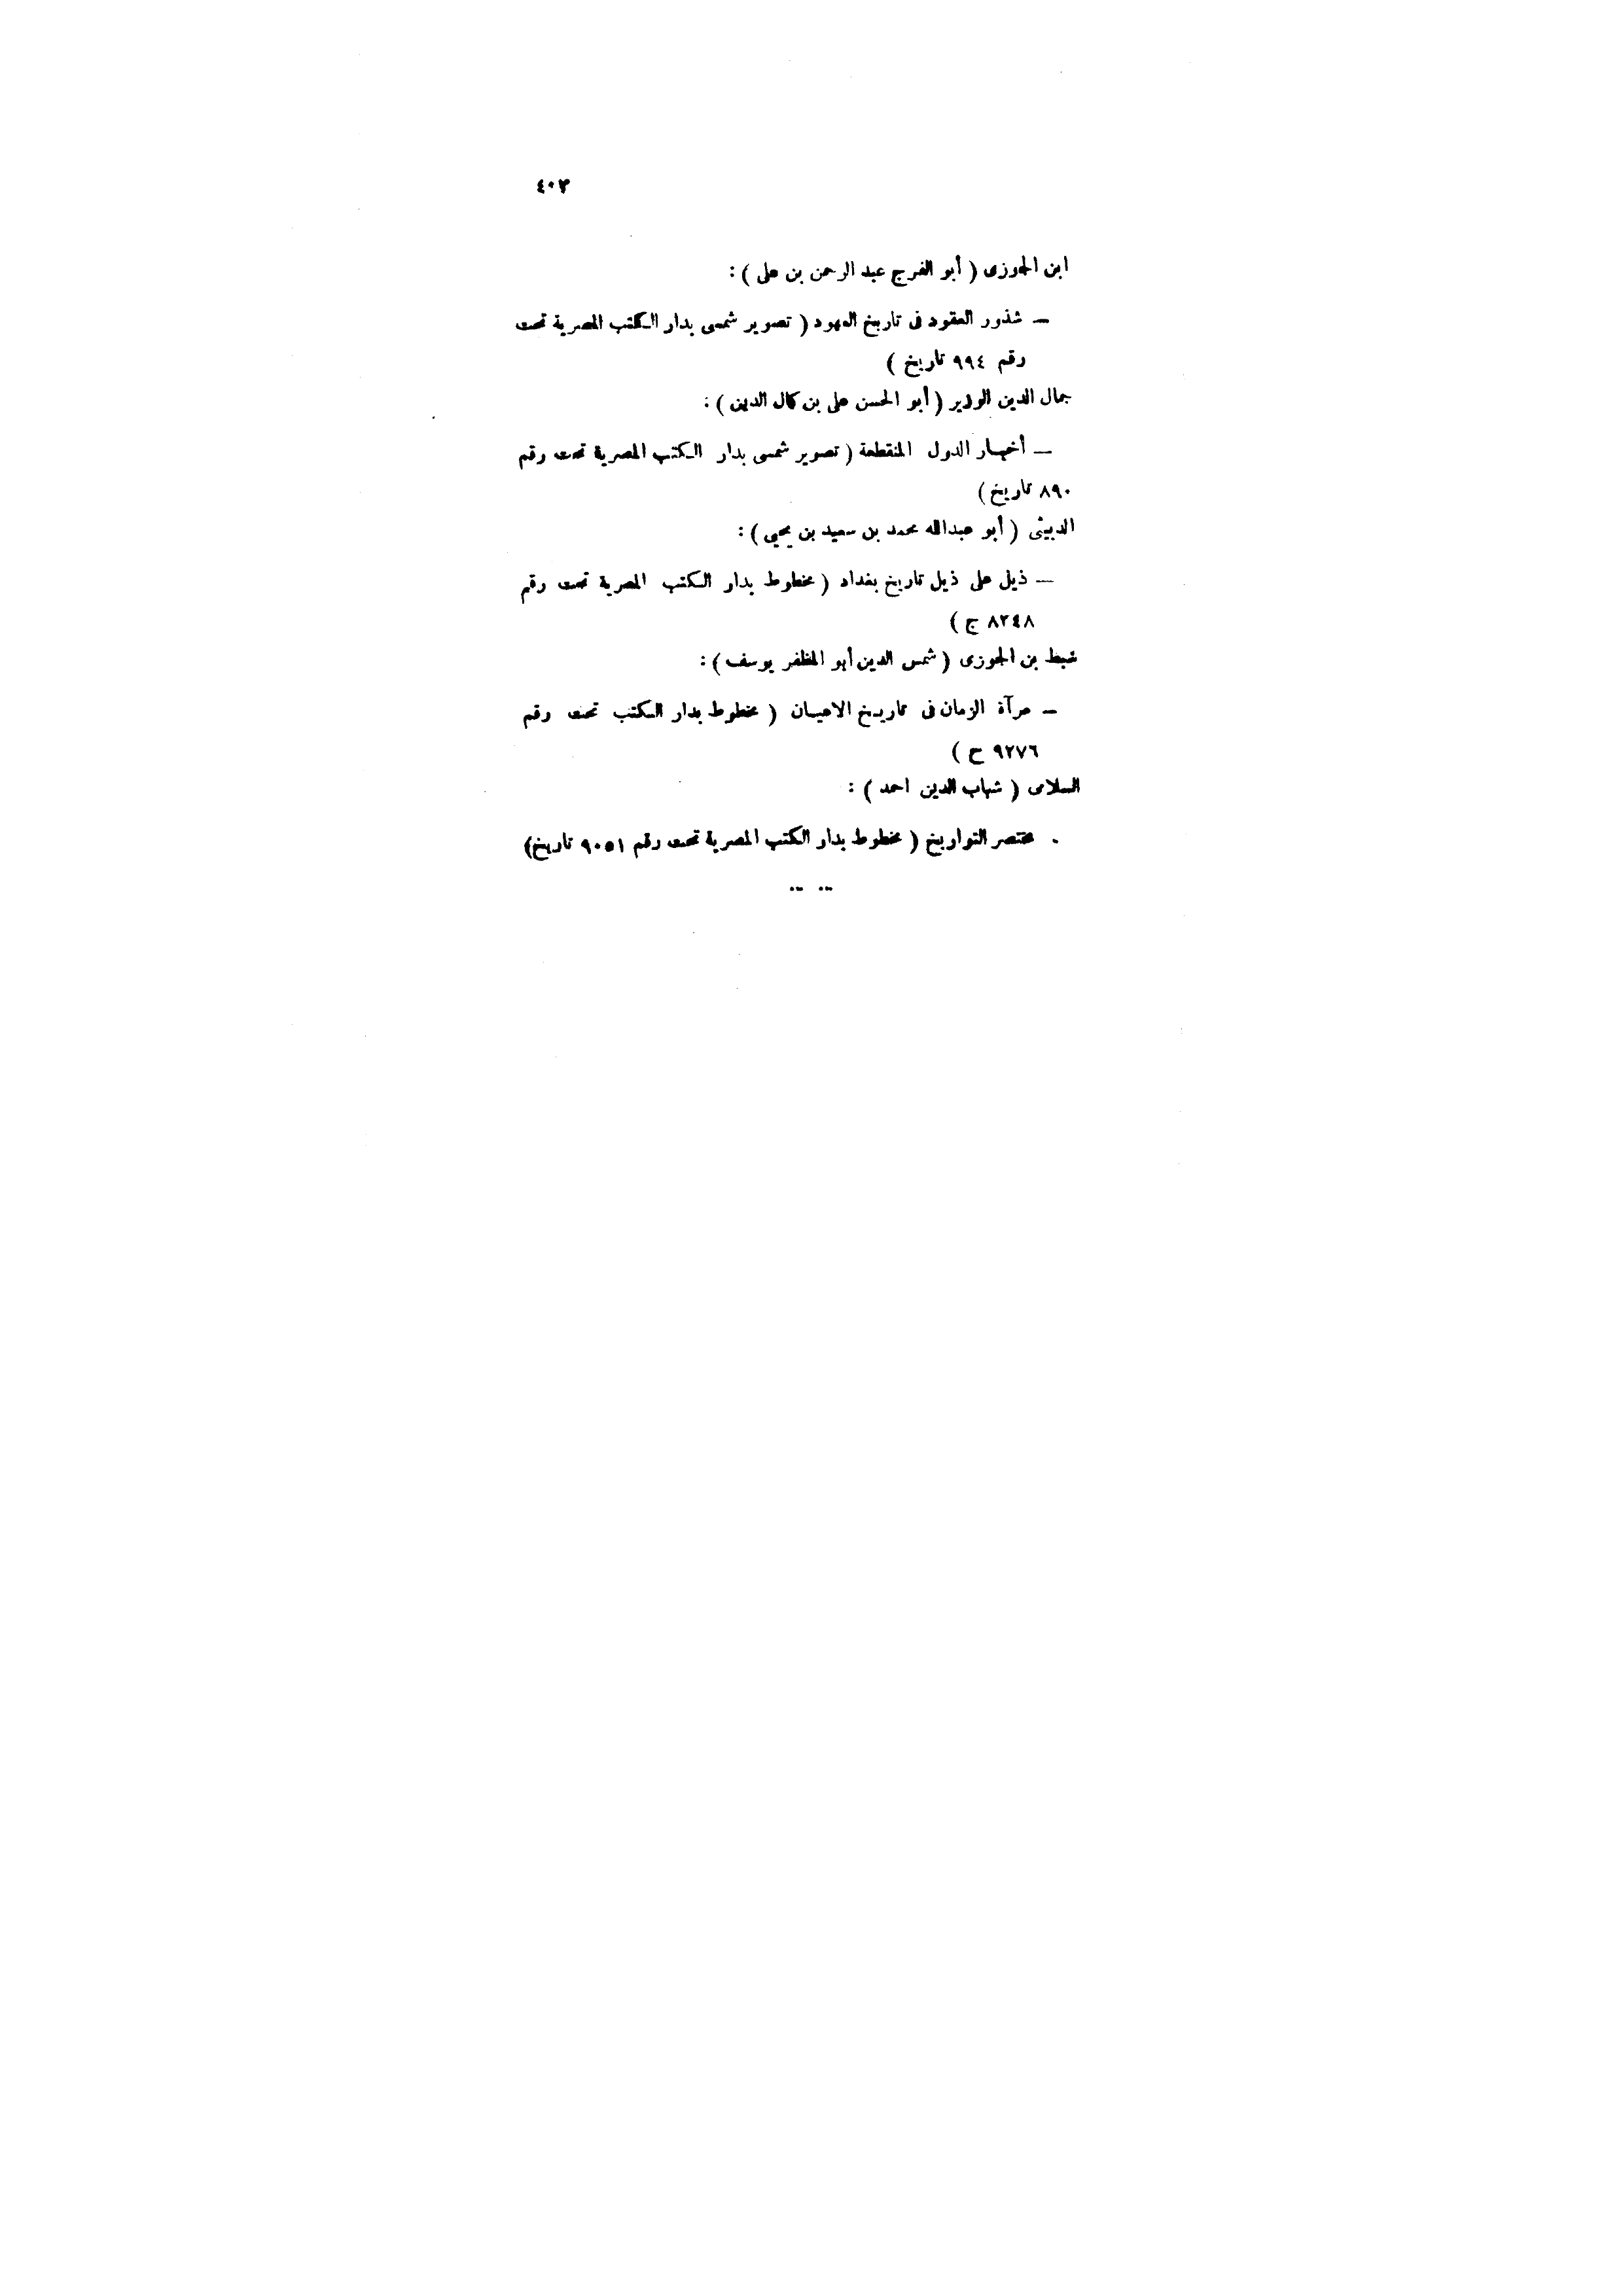 ٤٠٣
ابن الجوزى ( أبو الفرج عبد الرحمن بن على ) :
— شذور العقود فى تاريخ العهود ( تصوير شمسى بدار الكتب المصرية تحت
رقم ٩٩٤ تاريخ )
جمال الدين الوزير ( أبو الحسن على بن كمال الدين ) :
— أخبار الدول المنقطعة ( تصوير شمسى بدار الكتب المصرية تحت رقم
٨٩٠ تاريخ )
الدبيثى ( أبو عبدالله محمد بن سعيد بن يحيى ) :
— ذيل على ذيل تاريخ بغداد ( مخطوط بدار الكتب المصرية تحت رقم
٨٢٤٨ ج )
سبط بن الجوزى ( شمس الدين أبو المظفر يوسف ) :
— مرآة الزمان فى تاريخ الاعيان ( مخطوط بدار الكتب تحت رقم
٩٢٧٦ ح )
السلامى ( شهاب الدين احمد ) :
. مختصر التواريخ ( مخطوط بدار الكتب المصرية تحت رقم ٩٠٥١ تاريخ )